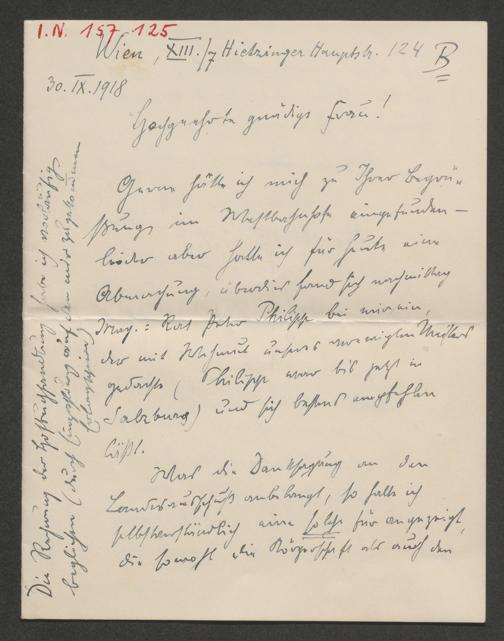 I.N. 157.125
Wien, XIII./7 Hietzinger Hauptstr. 124 B
30. IX. 1918
Hochgeehrte gnädige Frau!
Gerne hätte ich mich zu Ihrer Begrü-
ßung im Westbahnhofe eingefunden —
leider aber hatte ich für heute eine
Abmachung, überdies fand sich nachmittag
Mag.-Rat Peter Philipp bei mir ein,
der mit Wehmut unseres verewigten
gedachte (Philipp war bis jetzt in
Salzburg) und sich bestens empfehlen
läßt.
Was die Danksagung an den
Landesausschuß anbelangt, so halte ich
selbstverständlich eine solche für angezeigt,
da sowohl die Körperschaft als auch den
Die Rechnung der Hofbuchhandlung habe ich vorläufig
beglichen (durch